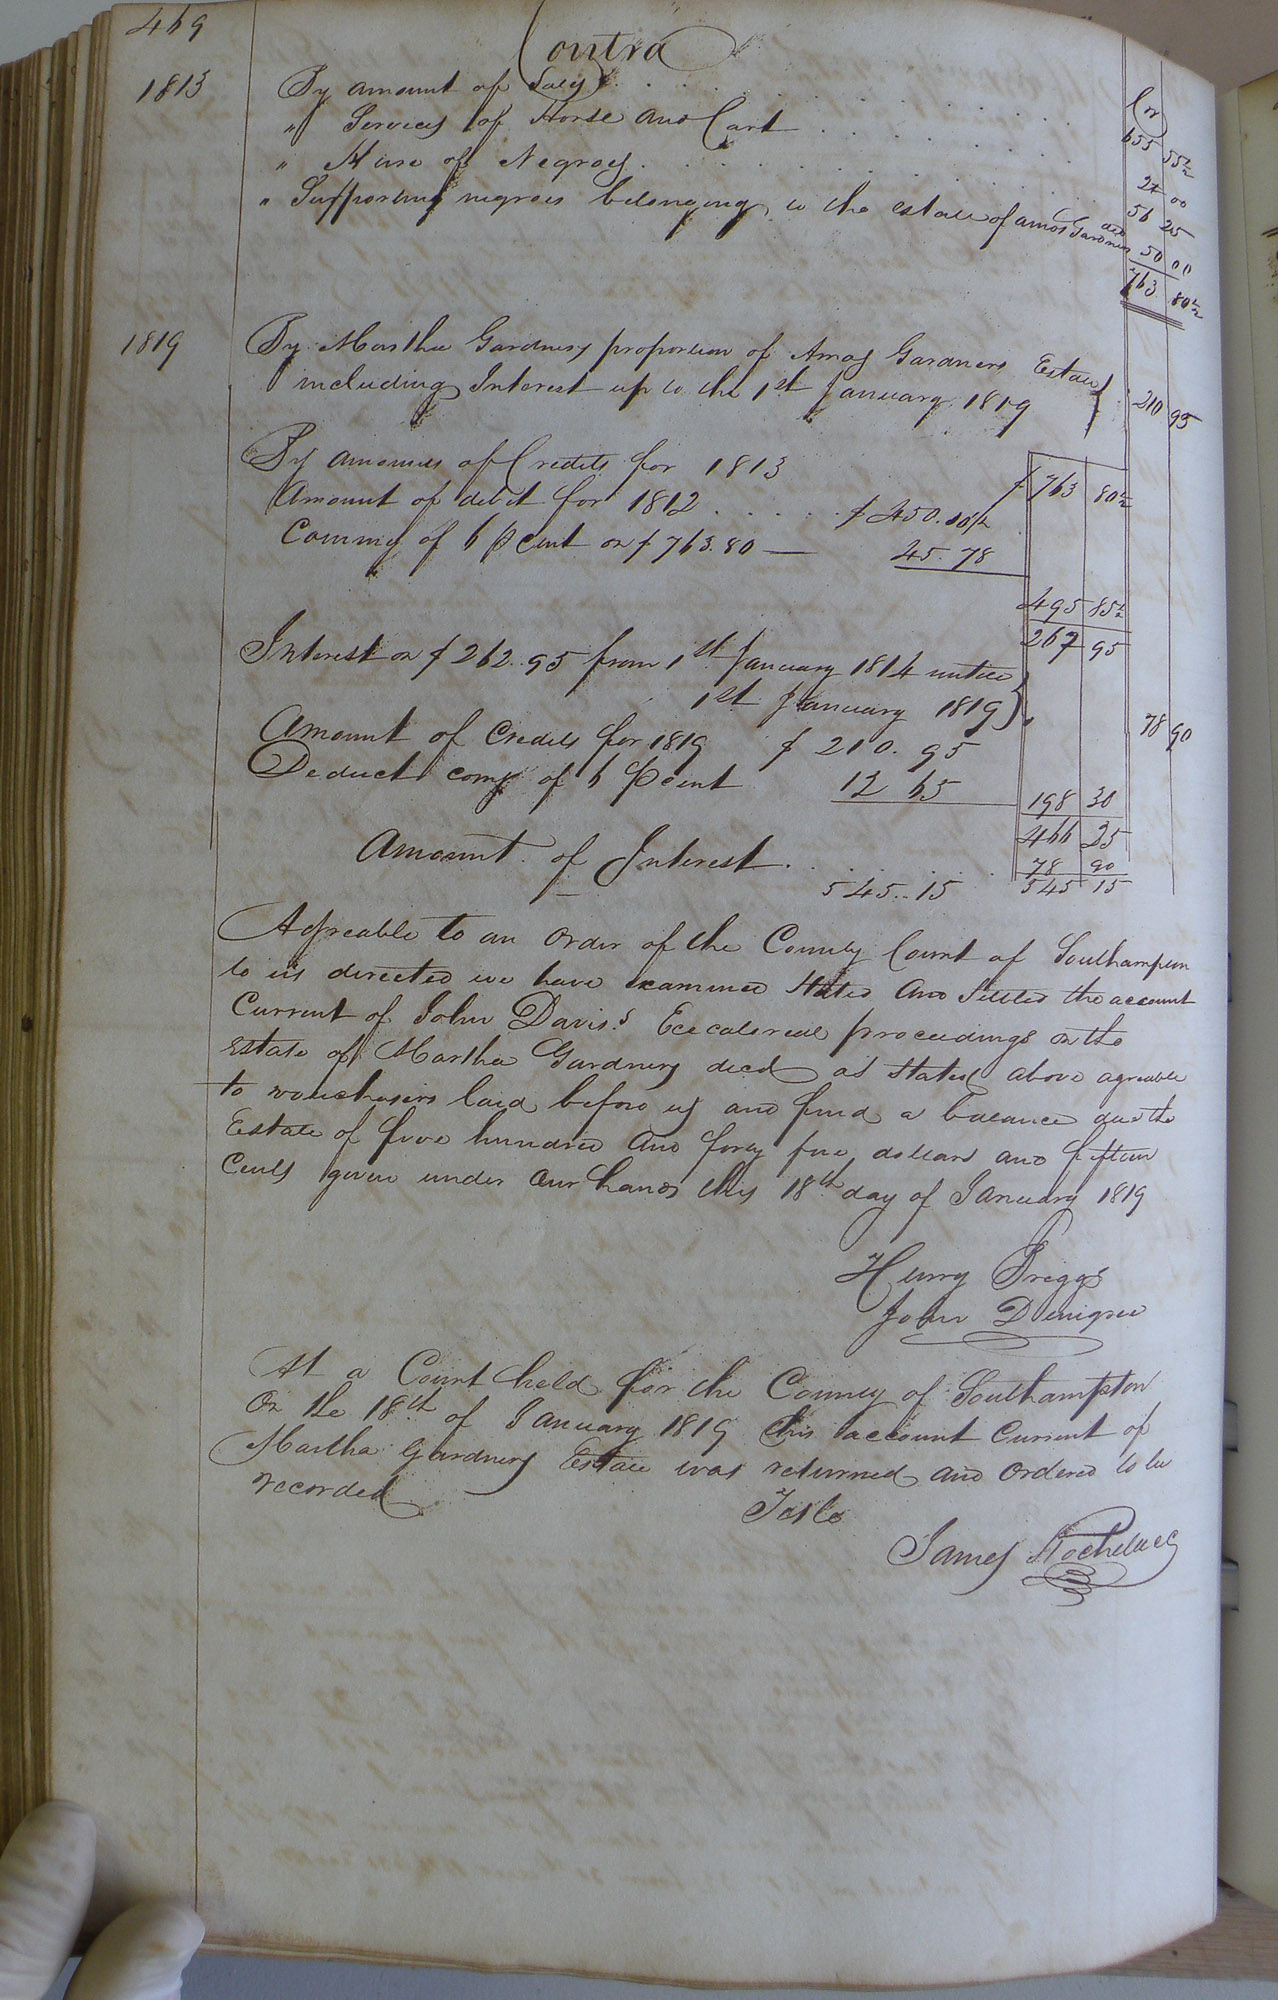 469
Contra
Cr
1813 By amount of Sales . . . . 633 55½
" Services of Horse and Cart . . . . 24 00
" Hire of Negroes . . . . 56 25
" Supporting negroes belonging to the estate of Amos Gardner decd 50 00
763 80½
1819 By Martha Gardners proportion of Amos Gardners Estate
including Interest up to the 1st January 1819 210 95
By amount of Credits for 1813 $ 763 80½
Amount of debit for 1812 . . . . . $ 450.
Commis of 6 p Cent on $ 763.80 — 45.78
495 85½
267 95
Interest on $ 262.95 from 1st January 1814 untill
1st January 1819 78 90
Amount of Credits for 1819 $ 210.95
Deduct comms of 6 p Cent 12 65 198 30
466 25
Amount of Interest . . . . 78 90
545..15 545 15
Agreable to an order of the County Court of Southampton
to us directed we have examined Stated and Settled the account
Current of John Davis.s proceedings on the
Estate of Martha Gardners decd as Stated above agreable
to vouchers laid before us and find a balance due the
Estate of five hundred and forty five dollars and fifteen
Cents given under our hands this 18th day of January 1819
Henry Briggs
John
At a Court held for the County of Southampton
On the 18th of January 1819 this account Current of
Martha Gardners Estate was returned and ordered to be
recorded
Teste
James Rochelle Cc